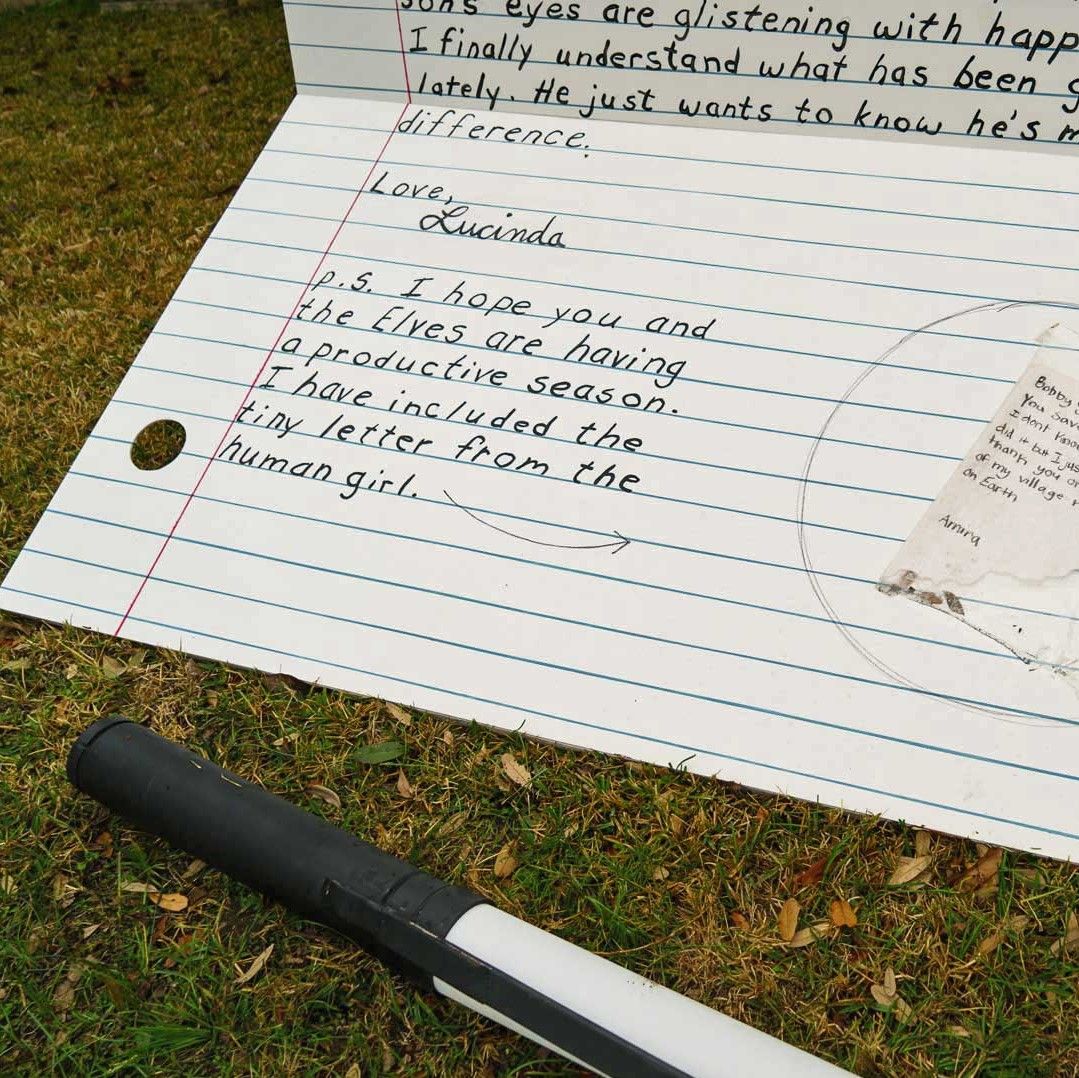 son's eyes are glistening with
I finally understand what has been
lately. He just wants to know he's
difference.
Love,
Lucinda
p.s. I hope you and
the Elves are having
a productive season.
I have included the
tiny letter from the
human girl.
Bobby
You
I dont
did it but I
thank you
of my village
on Earth
Amina